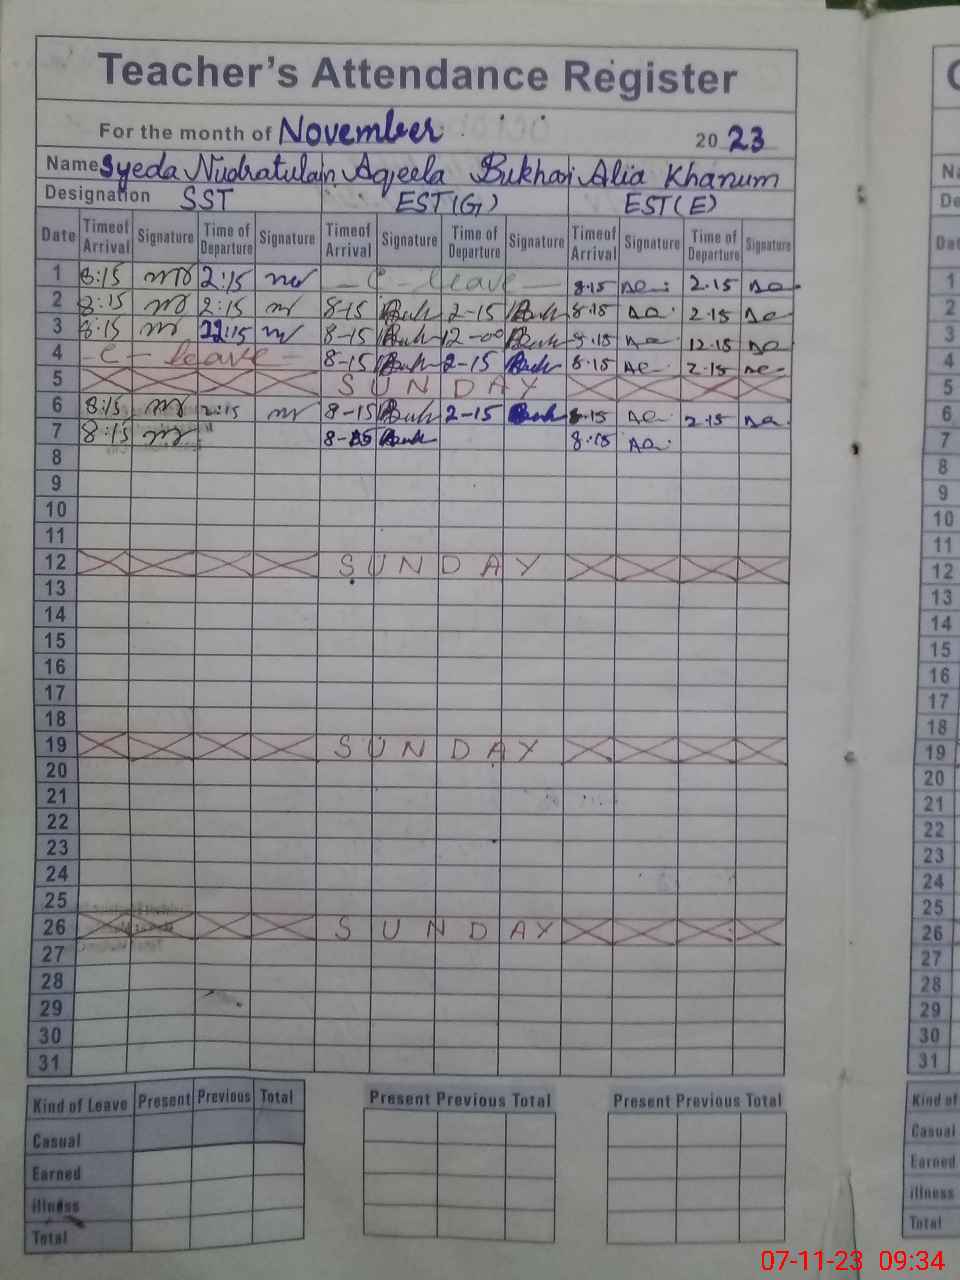 Teacher's Attendance Register
For the month of November 2023
Name Syeda Nudratulain Aqeela Bukhari Alia Khanum
Designation SST EST(G) EST(E)
Date Time of Arrival Signature Time of Departure Signature Time of Arrival Signature Time of Departure Signature Time of Arrival Signature Time of Departure Signature
1 8:15 2:15 - C - leave - 8.15 2.15
2 8:15 2:15 8-15 2-15 8.15 2.15
3 8:15 12:15 8-15 12-00 8.15 12.15
4 - C - leave - 8-15 2-15 8.15 2.15
5 SUNDAY
6 8:15 2:15 8-15 2-15 8.15 2.15
7 8:15 8-15 8.15
8
9
10
11
12 SUNDAY
13
14
15
16
17
18
19 SUNDAY
20
21
22
23
24
25
26 SUNDAY
27
28
29
30
31
Kind of Leave Present Previous Total Present Previous Total Present Previous Total
Casual
Earned
illness
Total
1
2
3
4
5
6
7
8
9
10
11
12
13
14
15
16
17
18
19
20
21
22
23
24
25
26
27
28
29
30
31
Kind of
Casual
Earned
illness
Total
07-11-23 09:34